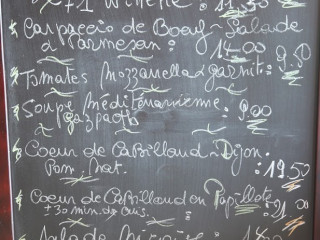 + 1 11,50
Carpaccio de Boeuf - Salade
& Parmesan : 14.00
Tomates Mozzarella & garnit : 9.50
Soupe méditéranienne : 9.00
& Gazpacho
Coeur de Cabillaud - Dijon.
Pom. Nat. : 19.50
Coeur de Cabillaud en Papillote
± 30 min. de cuis. : 21.00
Salade